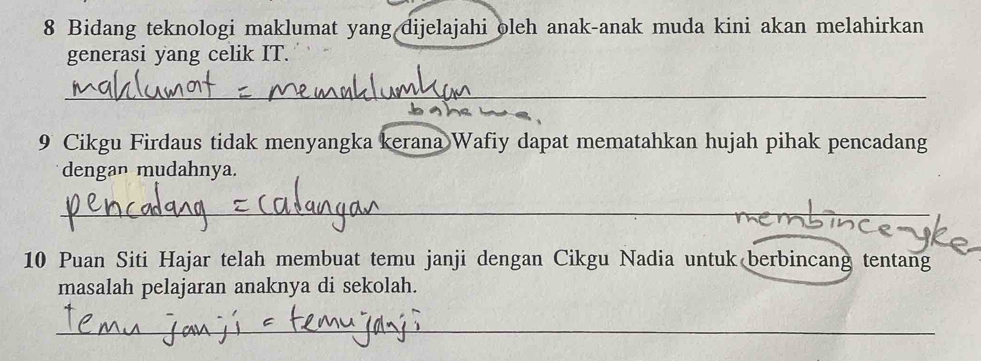 8 Bidang teknologi maklumat yang dijelajahi oleh anak-anak muda kini akan melahirkan
generasi yang celik IT.
maklumat = memaklumkan
bahawa.
9 Cikgu Firdaus tidak menyangka kerana Wafiy dapat mematahkan hujah pihak pencadang
dengan mudahnya.
pencadang = cadangan
membincangke
10 Puan Siti Hajar telah membuat temu janji dengan Cikgu Nadia untuk berbincang tentang
masalah pelajaran anaknya di sekolah.
temu janji = temujanji